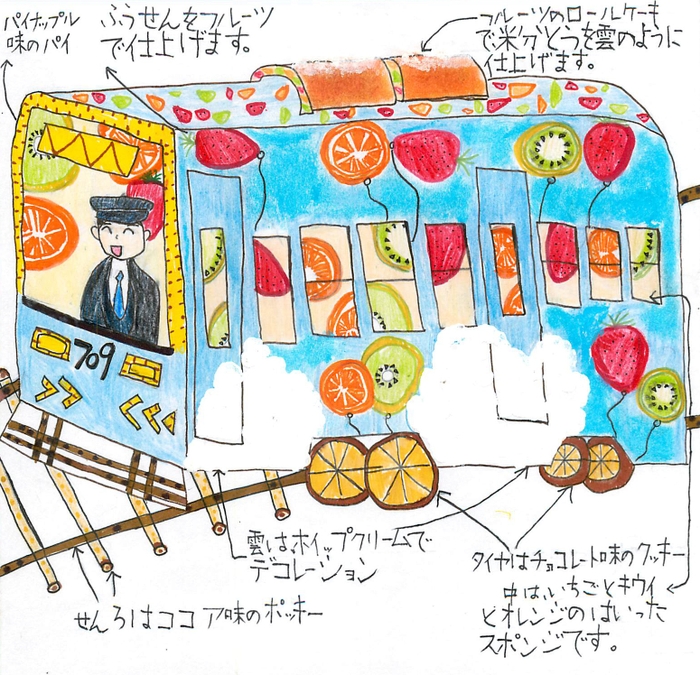 パイナップル
味のパイ
ふうせんをフルーツ
で仕上げます。
フルーツのロールケーキ
で米分とうを雲のように
仕上げます。
709
雲はホイップクリームで
デコレーション
タイヤはチョコレート味のクッキー
中はいちごとキウイ
とオレンジのはいった
スポンジです。
せんろはココア味のポッキー